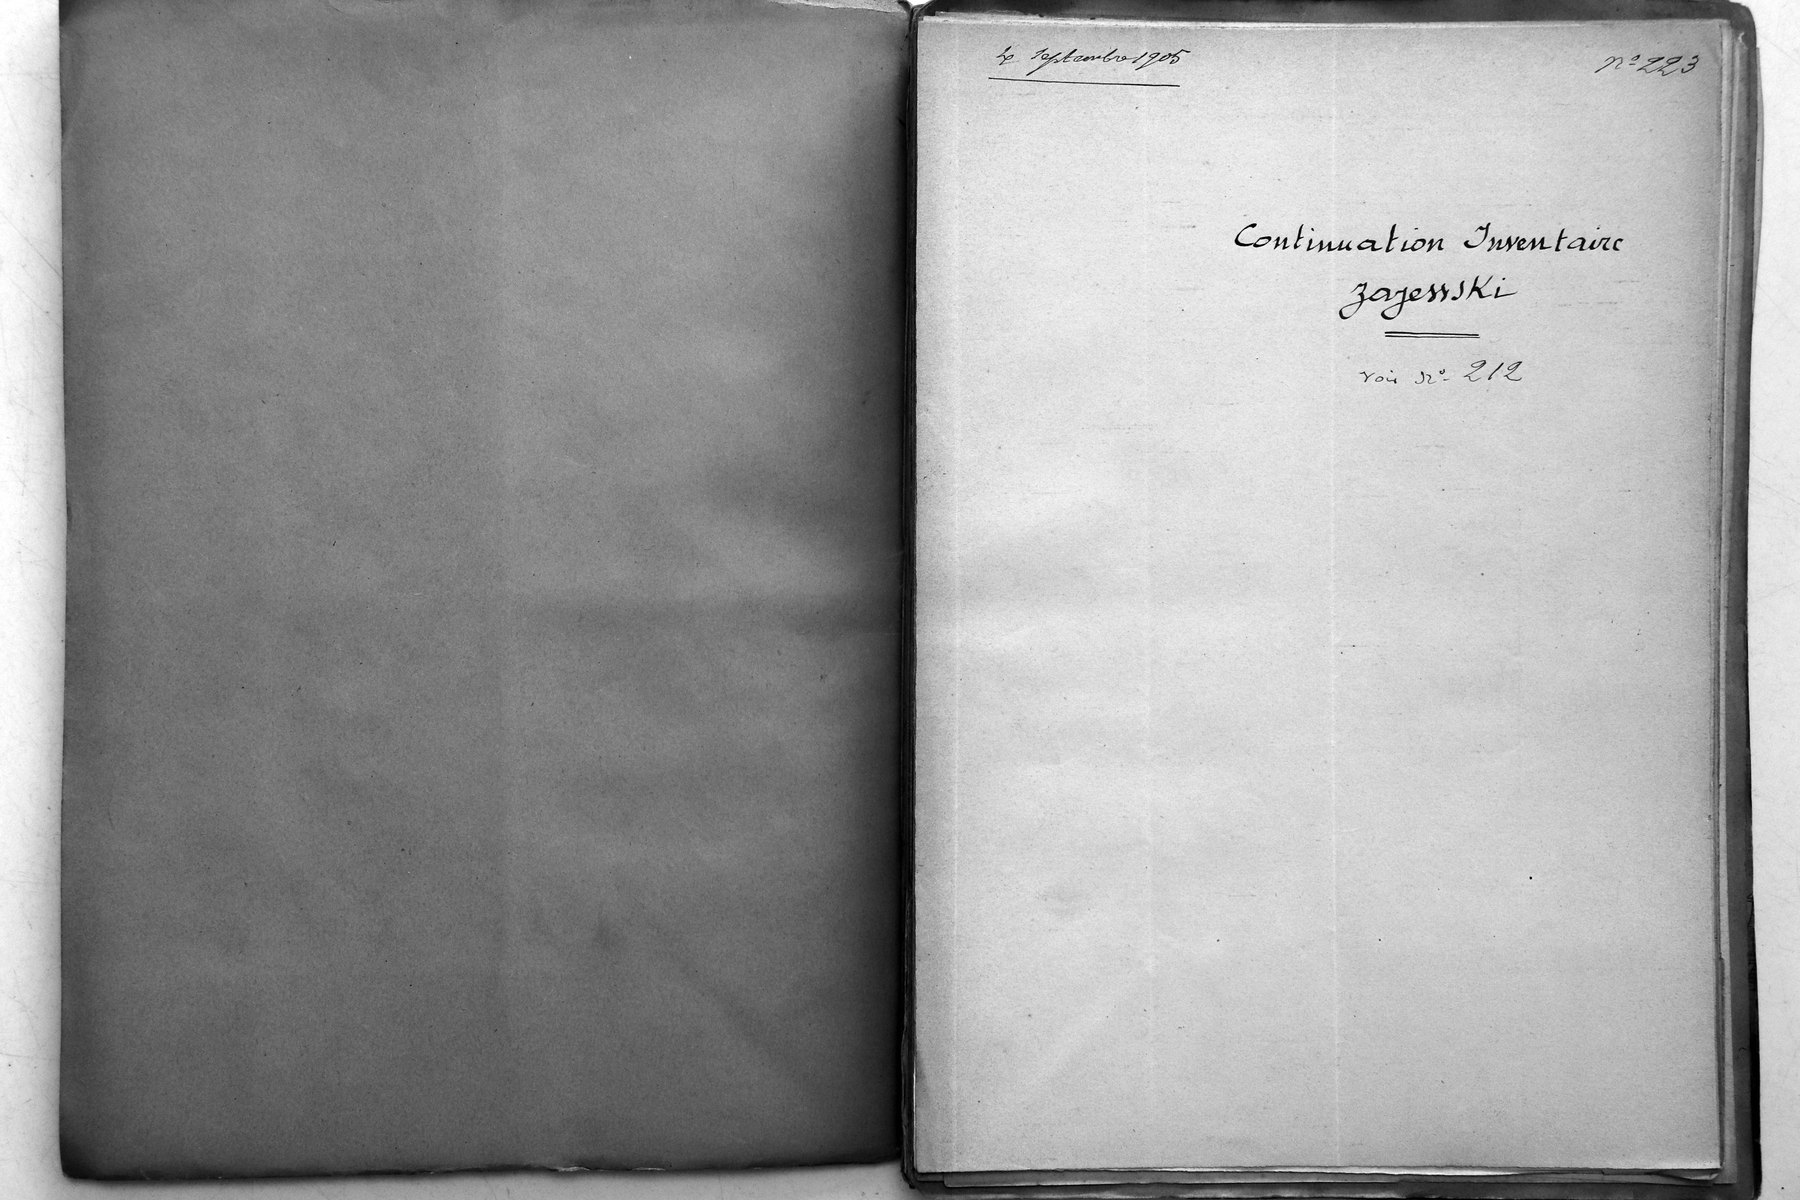 4 Septembre 1905
N° 223
Continuation Inventaire
Zajewski
voir N° 212